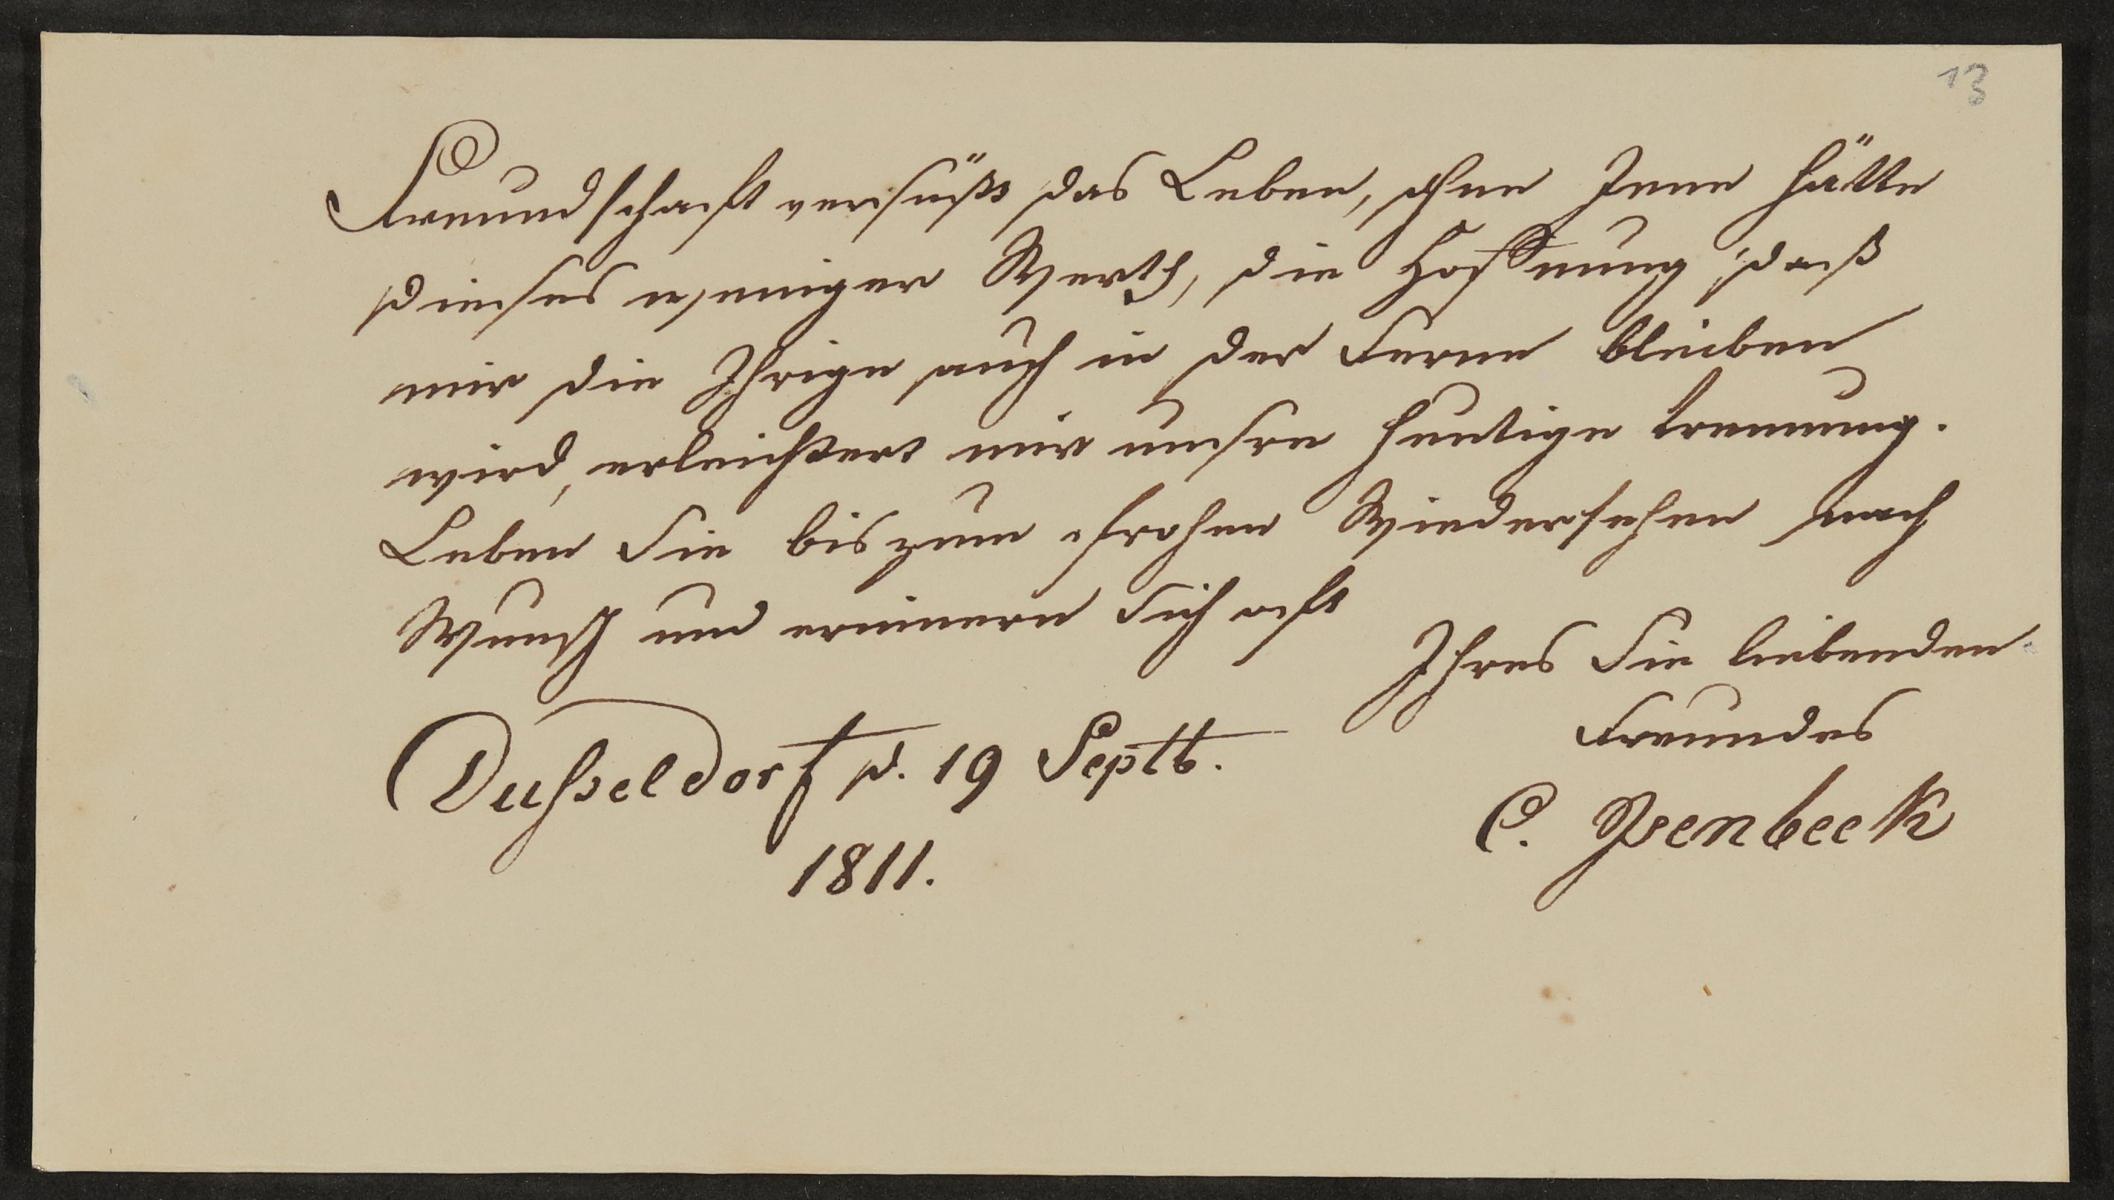 13
Freundschaft versüßt das Leben, ohne Jene hätte
dieses weniger Werth, die Hoffnung daß
mir die Ihrige auch in der Ferne bleiben
wird, erleichtert mir unsre heutige Trennung.
Leben Sie bis zum frohen Wiedersehen nach
Wunsch und erinnern Sich oft
Ihres Sie liebenden
Freundes
Dusseldorf d. 19 Septb.
1811.
C. Isenbeck